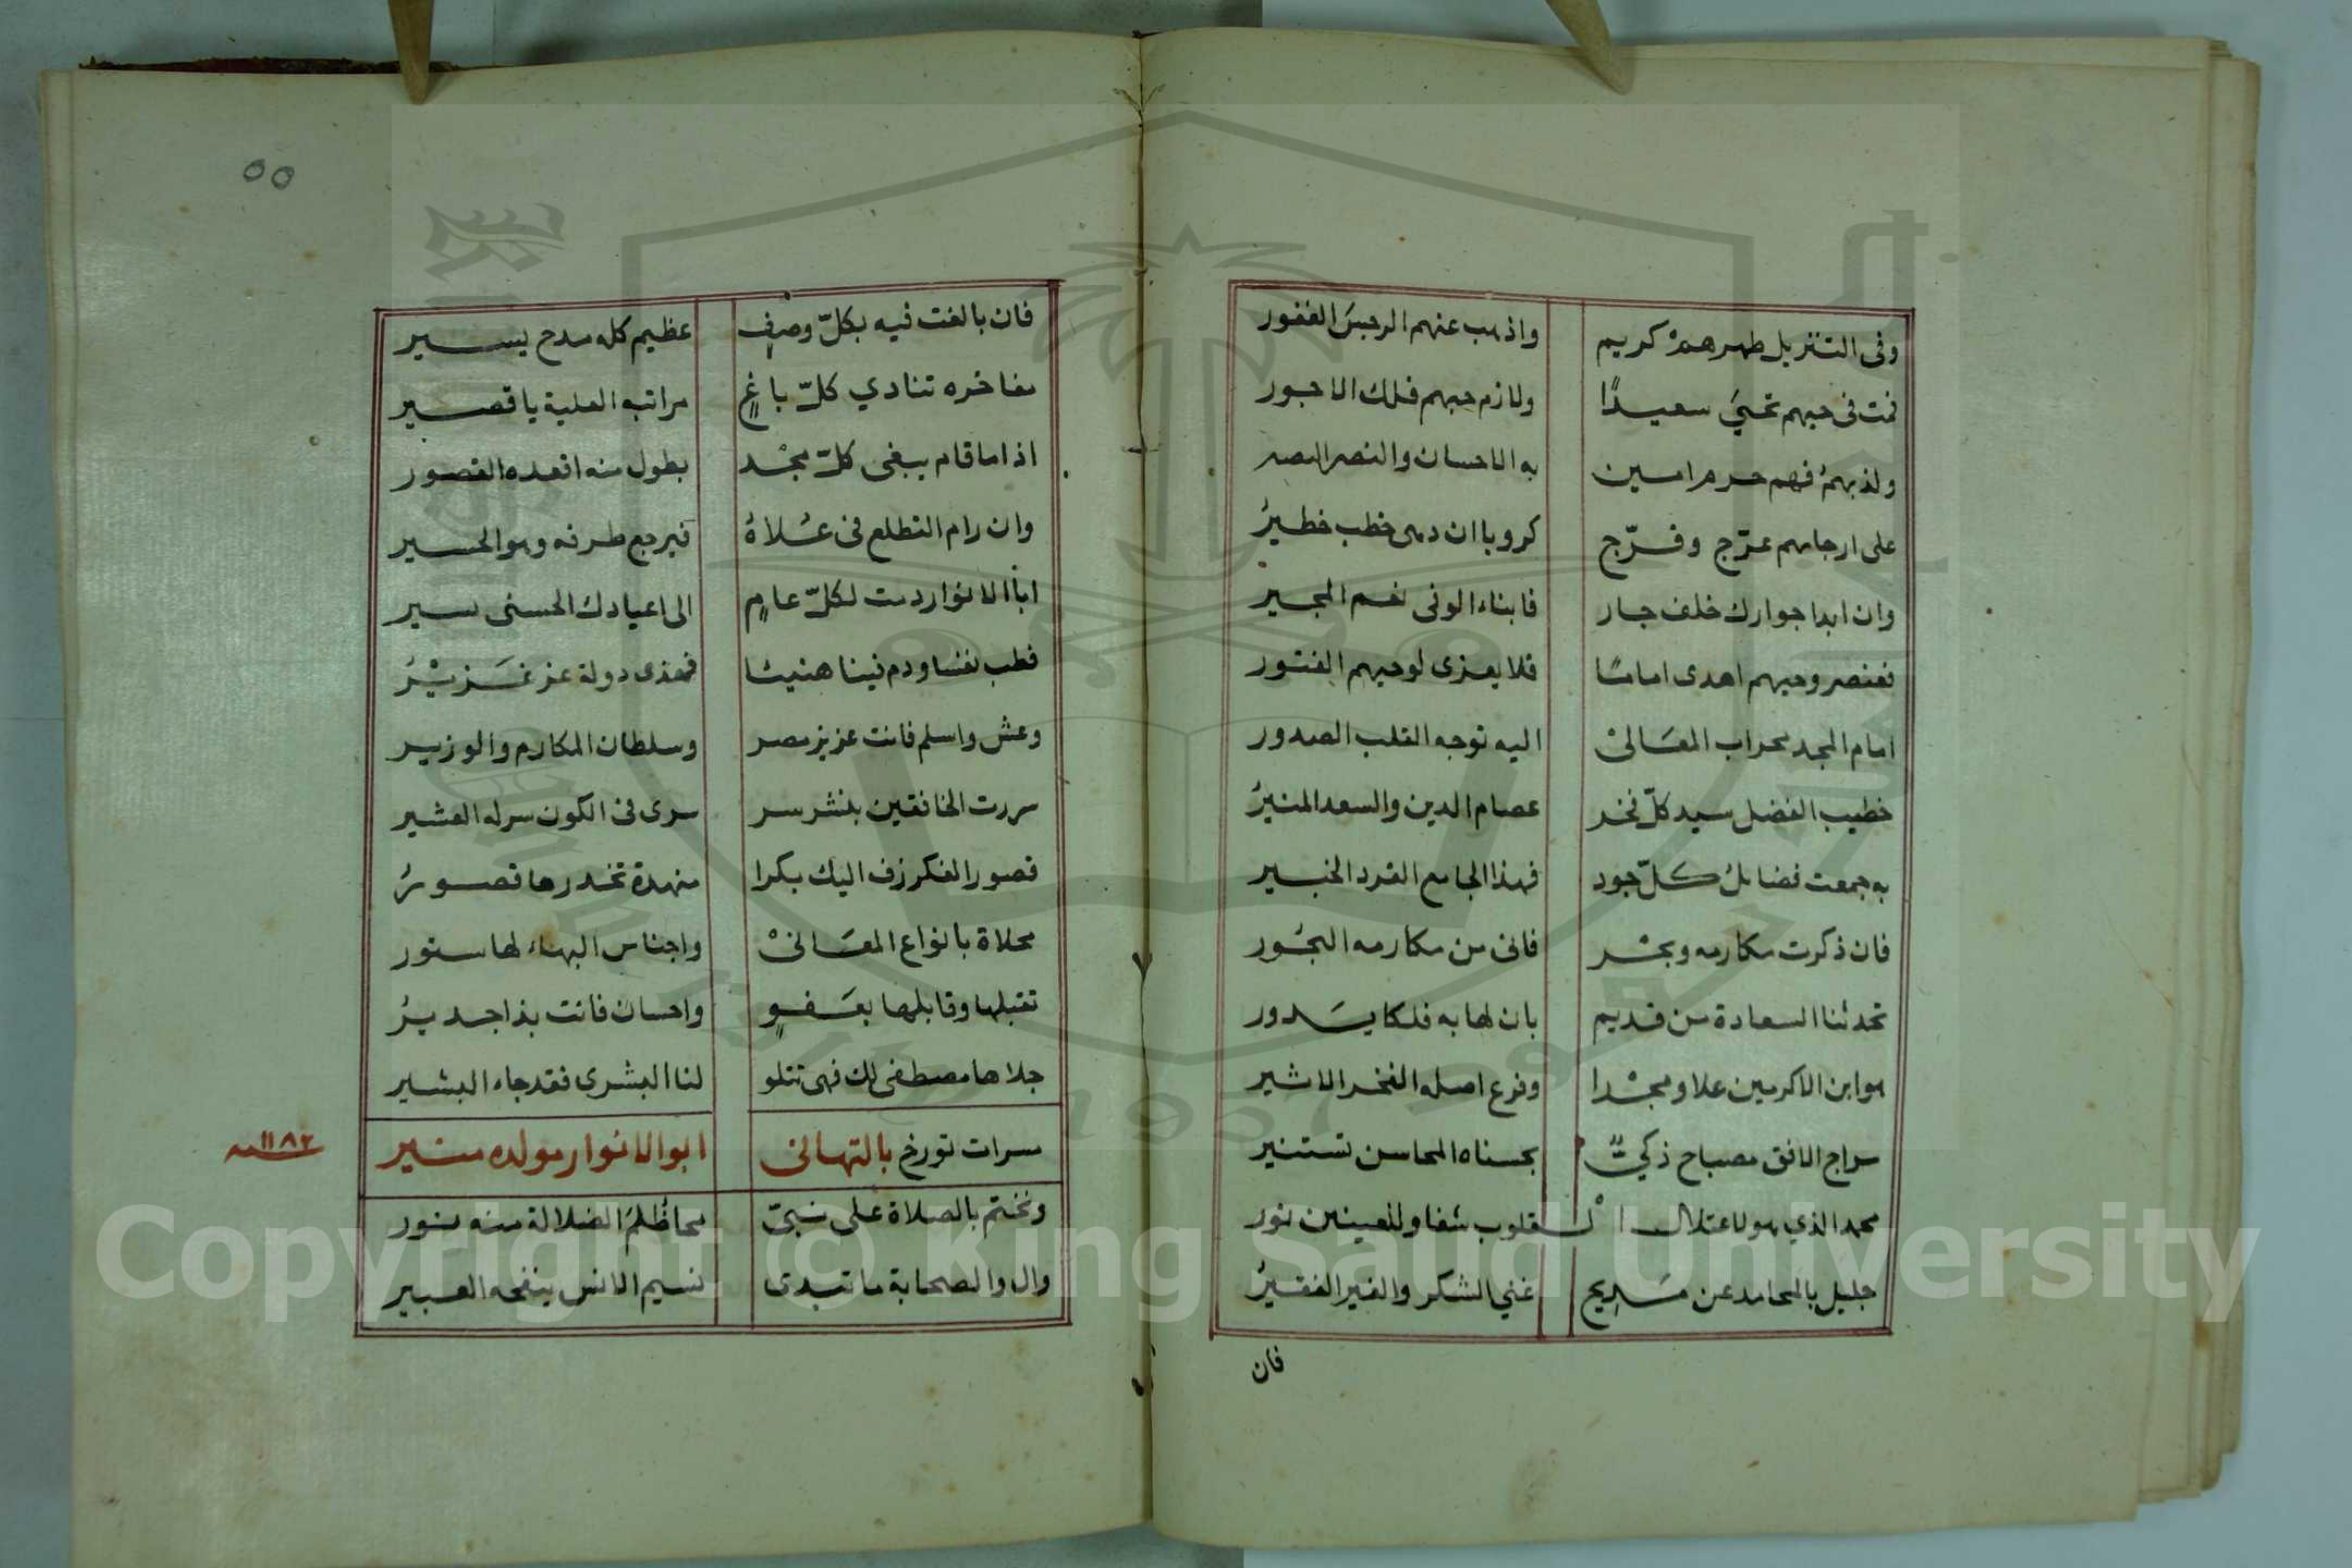 وفى التنزيل طهرهمْ كريم واذهب عنهم الرجسَ الغفور
فمت فى حبهم تحيَ سعيدًا ولازم حبهم فلك الاجور
ولذ بهمُ فهم حرم امين به الاحسان والنصر
على ارجامهم عرّج وفرّج كروبا ان دهى خطب خطيرُ
وان ابدا جوارك خلف جار فابناء الوفى نعم المجير
فعنصر وحيهم اهدى اماما فلا يعزى لوحيهم الفتور
امام المجد محراب المعَالىْ اليه توجه القلب الصدور
خطيب الفضل سيد كلّ فخر عصام الدين والسعد المنيرُ
به جمعت فضائلُ كلّ جود فهذا الجامع الفرد الخبير
فان ذكرت مكارمه وبحْر فانى من مكارمه البحُور
تحدثنا السعادة من قديم بان لها به فلكا يسَدور
هو ابن الاكرمين علا ومجْدا وفرع اصله الفخر الاثير
سراج الافق مصباح ذكيّ بحسناه المحاسن تستنير
محمد الذي هو لاعتلال الْقلوب شفا وللعينين نور
جليل بالمحامد عن مَديح غني الشكر والغير الفقيرُ
فان
٥٥
فان بالغت فيه بكلّ وصفٍ عظيم كله مدح يسير
مفاخره تنادي كلّ باغٍ مراتبه العلية يا قصير
اذا ما قام يبغى كلّ مجْد بطول منه اقعده القصور
وان رام التطلع فى عُلاهُ فيرجع طرفه وهو الحسير
ابا الانوار دمت لكلّ عامٍ الى اعيادك الحسنى
فطب نفسا ودم فينا هنيئا فهذى دولة عز غَزيْرُ
وعش واسلم فانت عزيز مصر وسلطان المكارم والوزير
سررت الخافقين بنشر سر سرى فى الكون سر له العشير
قصور الفكر زف اليك بكرا منهدة تخدرها قصورُ
محلاة بانواع المعَانىْ واجناس البهاء لها ستور
تقبلها وقابلها بعَفوٍ واحسان فانت بذا جديرُ
جلاها مصطفى لك فهى تتلو لنا البشرى فقد جاء البشير
مسرات تورخ بالتهانى ابو الانوار مولده منير
١١٨٢ سنه
ونختم بالصلاة على نبىّ محا ظُلَمَ الضلالة منه نور
وال والصحابة ما تبدى نسيم الانس ينفحه العبير
Copyright © King Saud University
1957